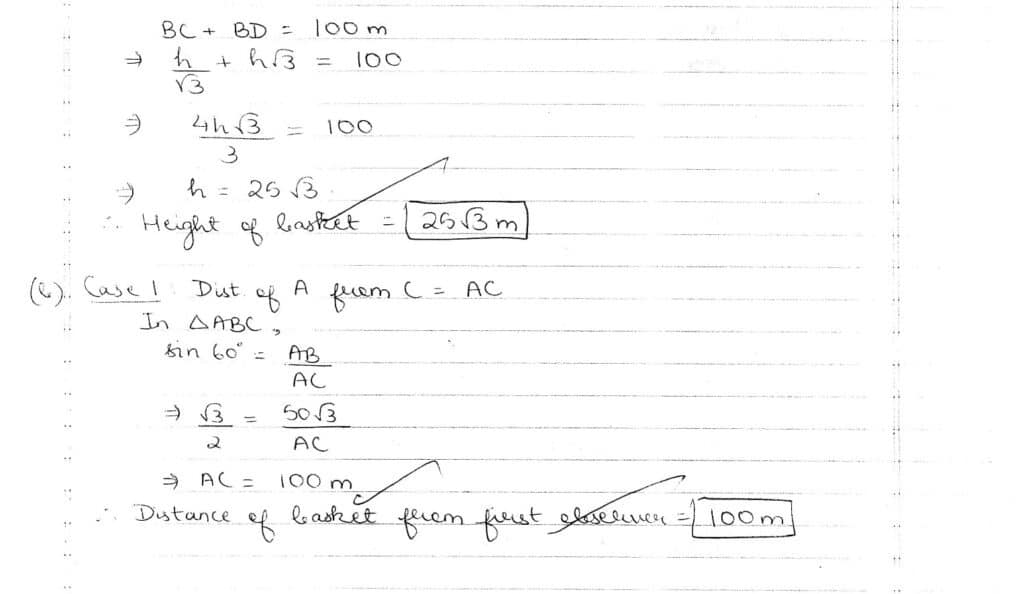 BC + BD = 100 m
⇒ h/√3 + h√3 = 100
⇒ 4h√3/3 = 100
⇒ h = 25√3
∴ Height of basket = 25√3 m
(b). Case 1 : Dist. of A from C = AC
In △ABC,
sin 60° = AB/AC
⇒ √3/2 = 50√3/AC
⇒ AC = 100 m
∴ Distance of basket from first observer = 100 m